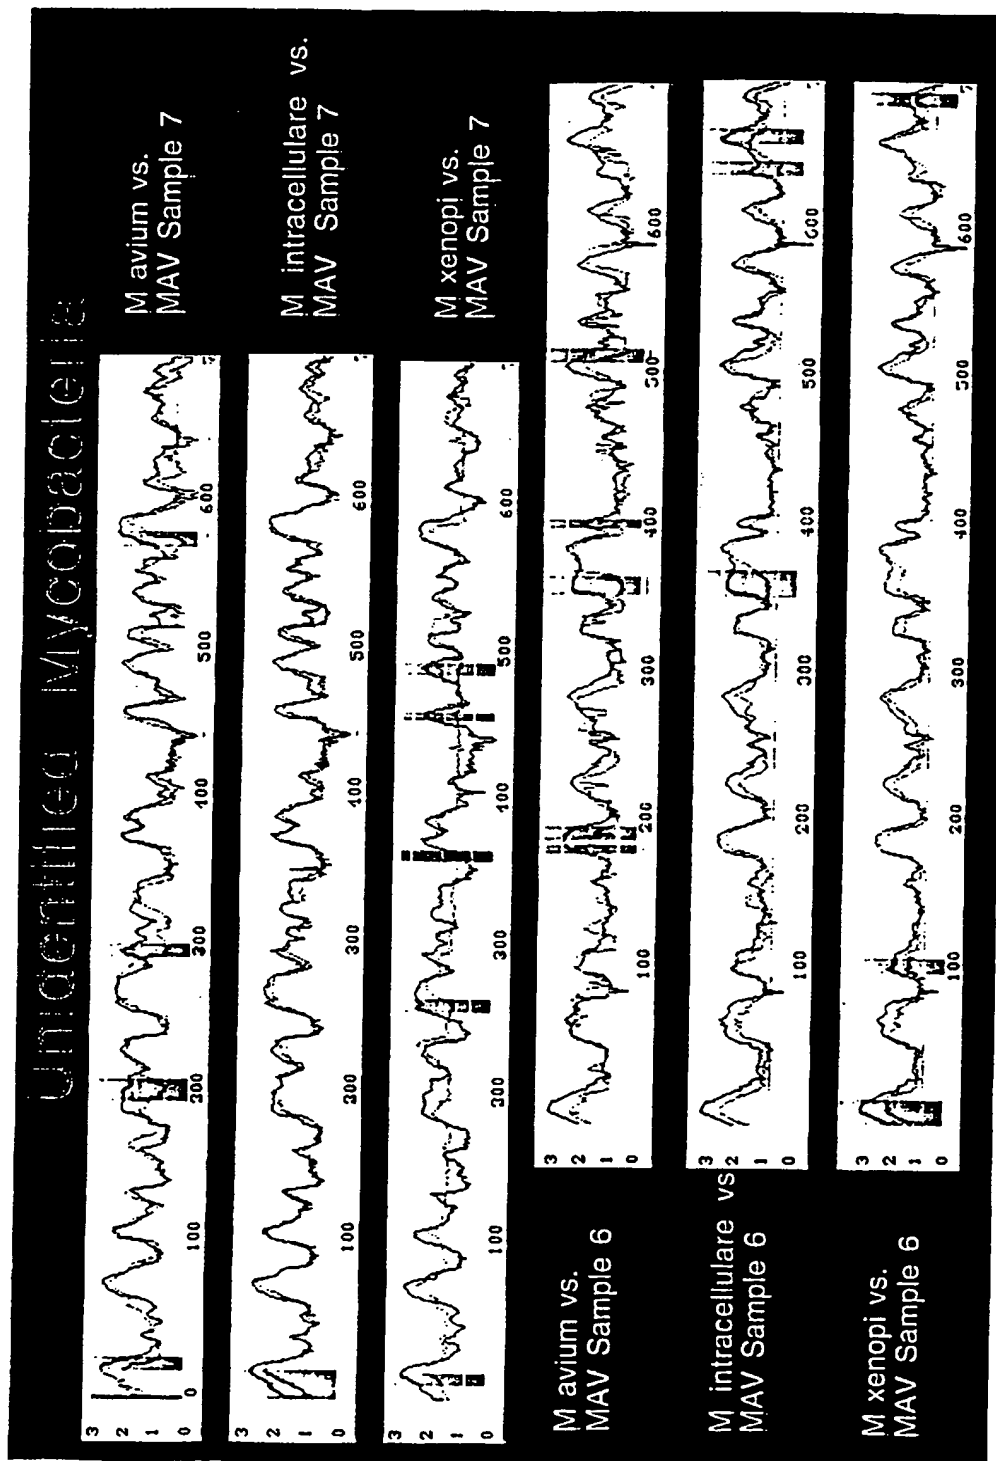 Unidentified Mycobacteria
3 2 1 0
0 100 200 300 400 500 600
M avium vs.
MAV Sample 7
3 2 1 0
100 200 300 400 500 600
M intracellulare vs.
MAV Sample 7
3 2 1 0
100 200 300 400 500 600
M xenopi vs.
MAV Sample 7
M avium vs.
MAV Sample 6
3 2 1 0
100 200 300 400 500 600
M intracellulare vs
MAV Sample 6
3 2 1 0
100 200 300 400 500 600
M xenopi vs.
MAV Sample 6
3 2 1 0
100 200 300 400 500 600